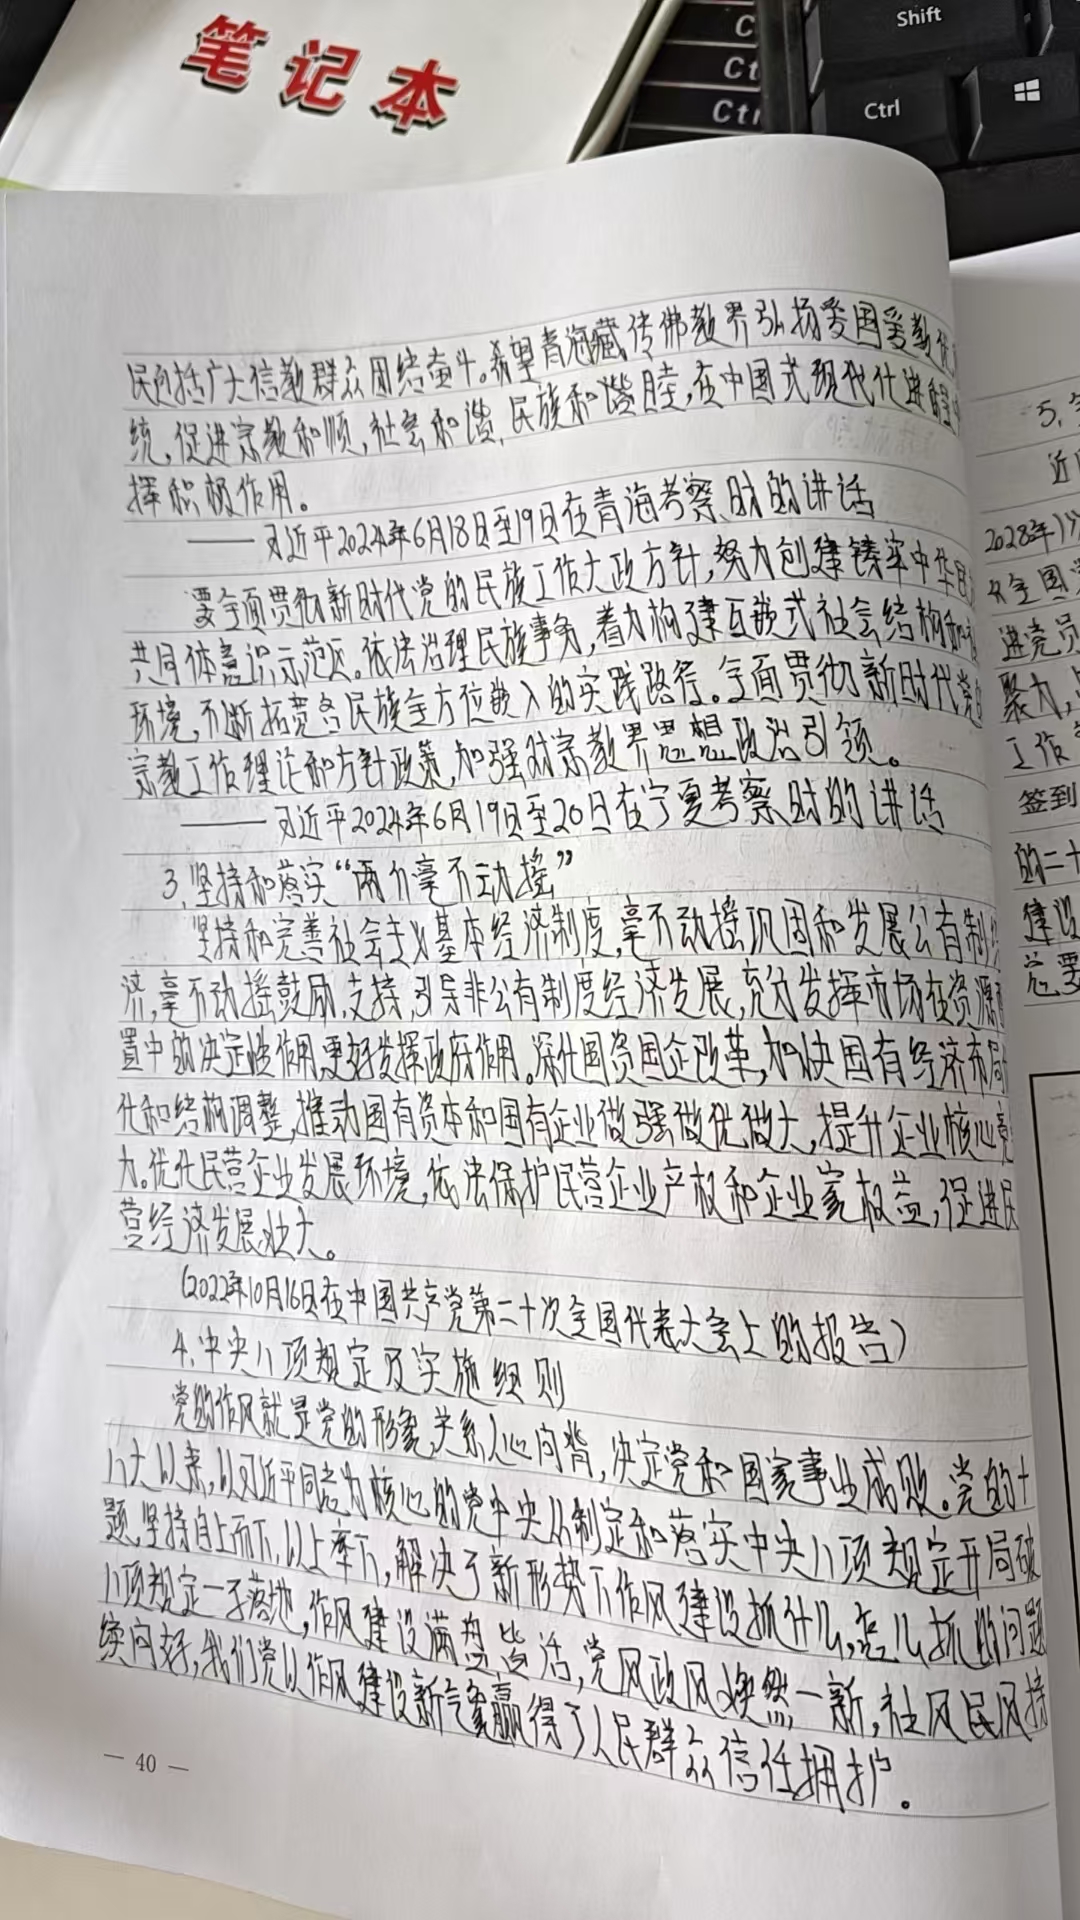 笔记本
Shift
Ctrl
C
Ct
Ctr
民包括广大信教群众团结奋斗。希望青海藏传佛教界弘扬爱国爱教优
统,促进宗教和顺,社会和谐,民族和谐睦,在中国式现代化进程中
挥积极作用。
——习近平2024年6月18日至19日在青海考察时的讲话
要全面贯彻新时代党的民族工作大政方针,努力创建铸牢中华民
共同体意识示范区。依法治理民族事务,着力构建互嵌式社会结构和
环境,不断拓宽各民族全方位嵌入的实践路径。全面贯彻新时代党的
宗教工作理论和方针政策,加强对宗教界思想政治引领。
——习近平2024年6月19日至20日在宁夏考察时的讲话
3.坚持和落实“两个毫不动摇”
坚持和完善社会主义基本经济制度,毫不动摇巩固和发展公有制
济,毫不动摇鼓励,支持,引导非公有制度经济发展,充分发挥市场在资源
置中的决定性作用,更好发挥政府作用。深化国资国企改革,加快国有经济布局
化和结构调整,推动国有资本和国有企业做强做优做大,提升企业核心竞
力。优化民营企业发展环境,依法保护民营企业产权和企业家权益,促进民
营经济发展壮大。
(2022年10月16日在中国共产党第二十次全国代表大会上的报告)
4.中央八项规定及实施细则
党的作风就是党的形象,关系人心向背,决定党和国家事业成败。党的十
八大以来,以习近平同志为核心的党中央从制定和落实中央八项规定开局破
题,坚持自上而下,以上率下,解决了新形势下作风建设抓什么,怎么抓的问题
八项规定一子落地,作风建设满盘皆活,党风政风焕然一新,社风民风持
续向好,我们党以作风建设新气象赢得了人民群众信任拥护。
— 40 —
5.
近
2028年1
全国
进党员
聚力,
工作
签到
的二十
建设
总要